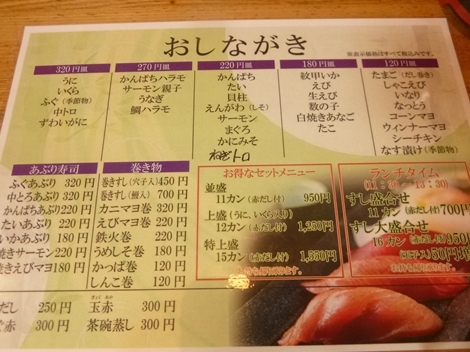 おしながき
※表示価格はすべて税込みです。
320円皿
うに
いくら
ふぐ(季節物)
中トロ
ずわいがに
270円皿
かんぱちハラモ
サーモン親子
うなぎ
鯛ハラモ
220円皿
かんぱち
たい
貝柱
えんがわ(しそ)
サーモン
まぐろ
かにみそ
ねぎトロ
180円皿
紋甲いか
えび
生えび
数の子
白焼きあなご
たこ
120円皿
たまご(だし巻き)
しゃこえび
いなり
なっとう
コーンマヨ
ウィンナーマヨ
シーチキン
なす漬け(季節物)
あぶり寿司
ふぐあぶり 320円
中とろあぶり 320円
かんぱちあぶり 220円
たいあぶり 220円
いかあぶり 180円
焼きサーモン 220円
焼きえびマヨ 180円
巻き物
巻きずし(穴子入) 450円
巻きずし(鰻入) 700円
カニマヨ巻 220円
えびマヨ巻 220円
鉄火巻 220円
うめしそ巻 180円
かっぱ巻 120円
しんこ巻 120円
お得なセットメニュー
並盛
11カン(赤だし付) 950円
上盛(うに、いくら入り)
12カン(赤だし付) 1,250円
特上盛
15カン(赤だし付) 1,550円
ランチタイム
すし盛合せ
11カン(赤だし付) 700円
すし大盛合せ
16カン(赤だし付)
だし 250円
赤 300円
玉赤 300円
茶碗蒸し 300円